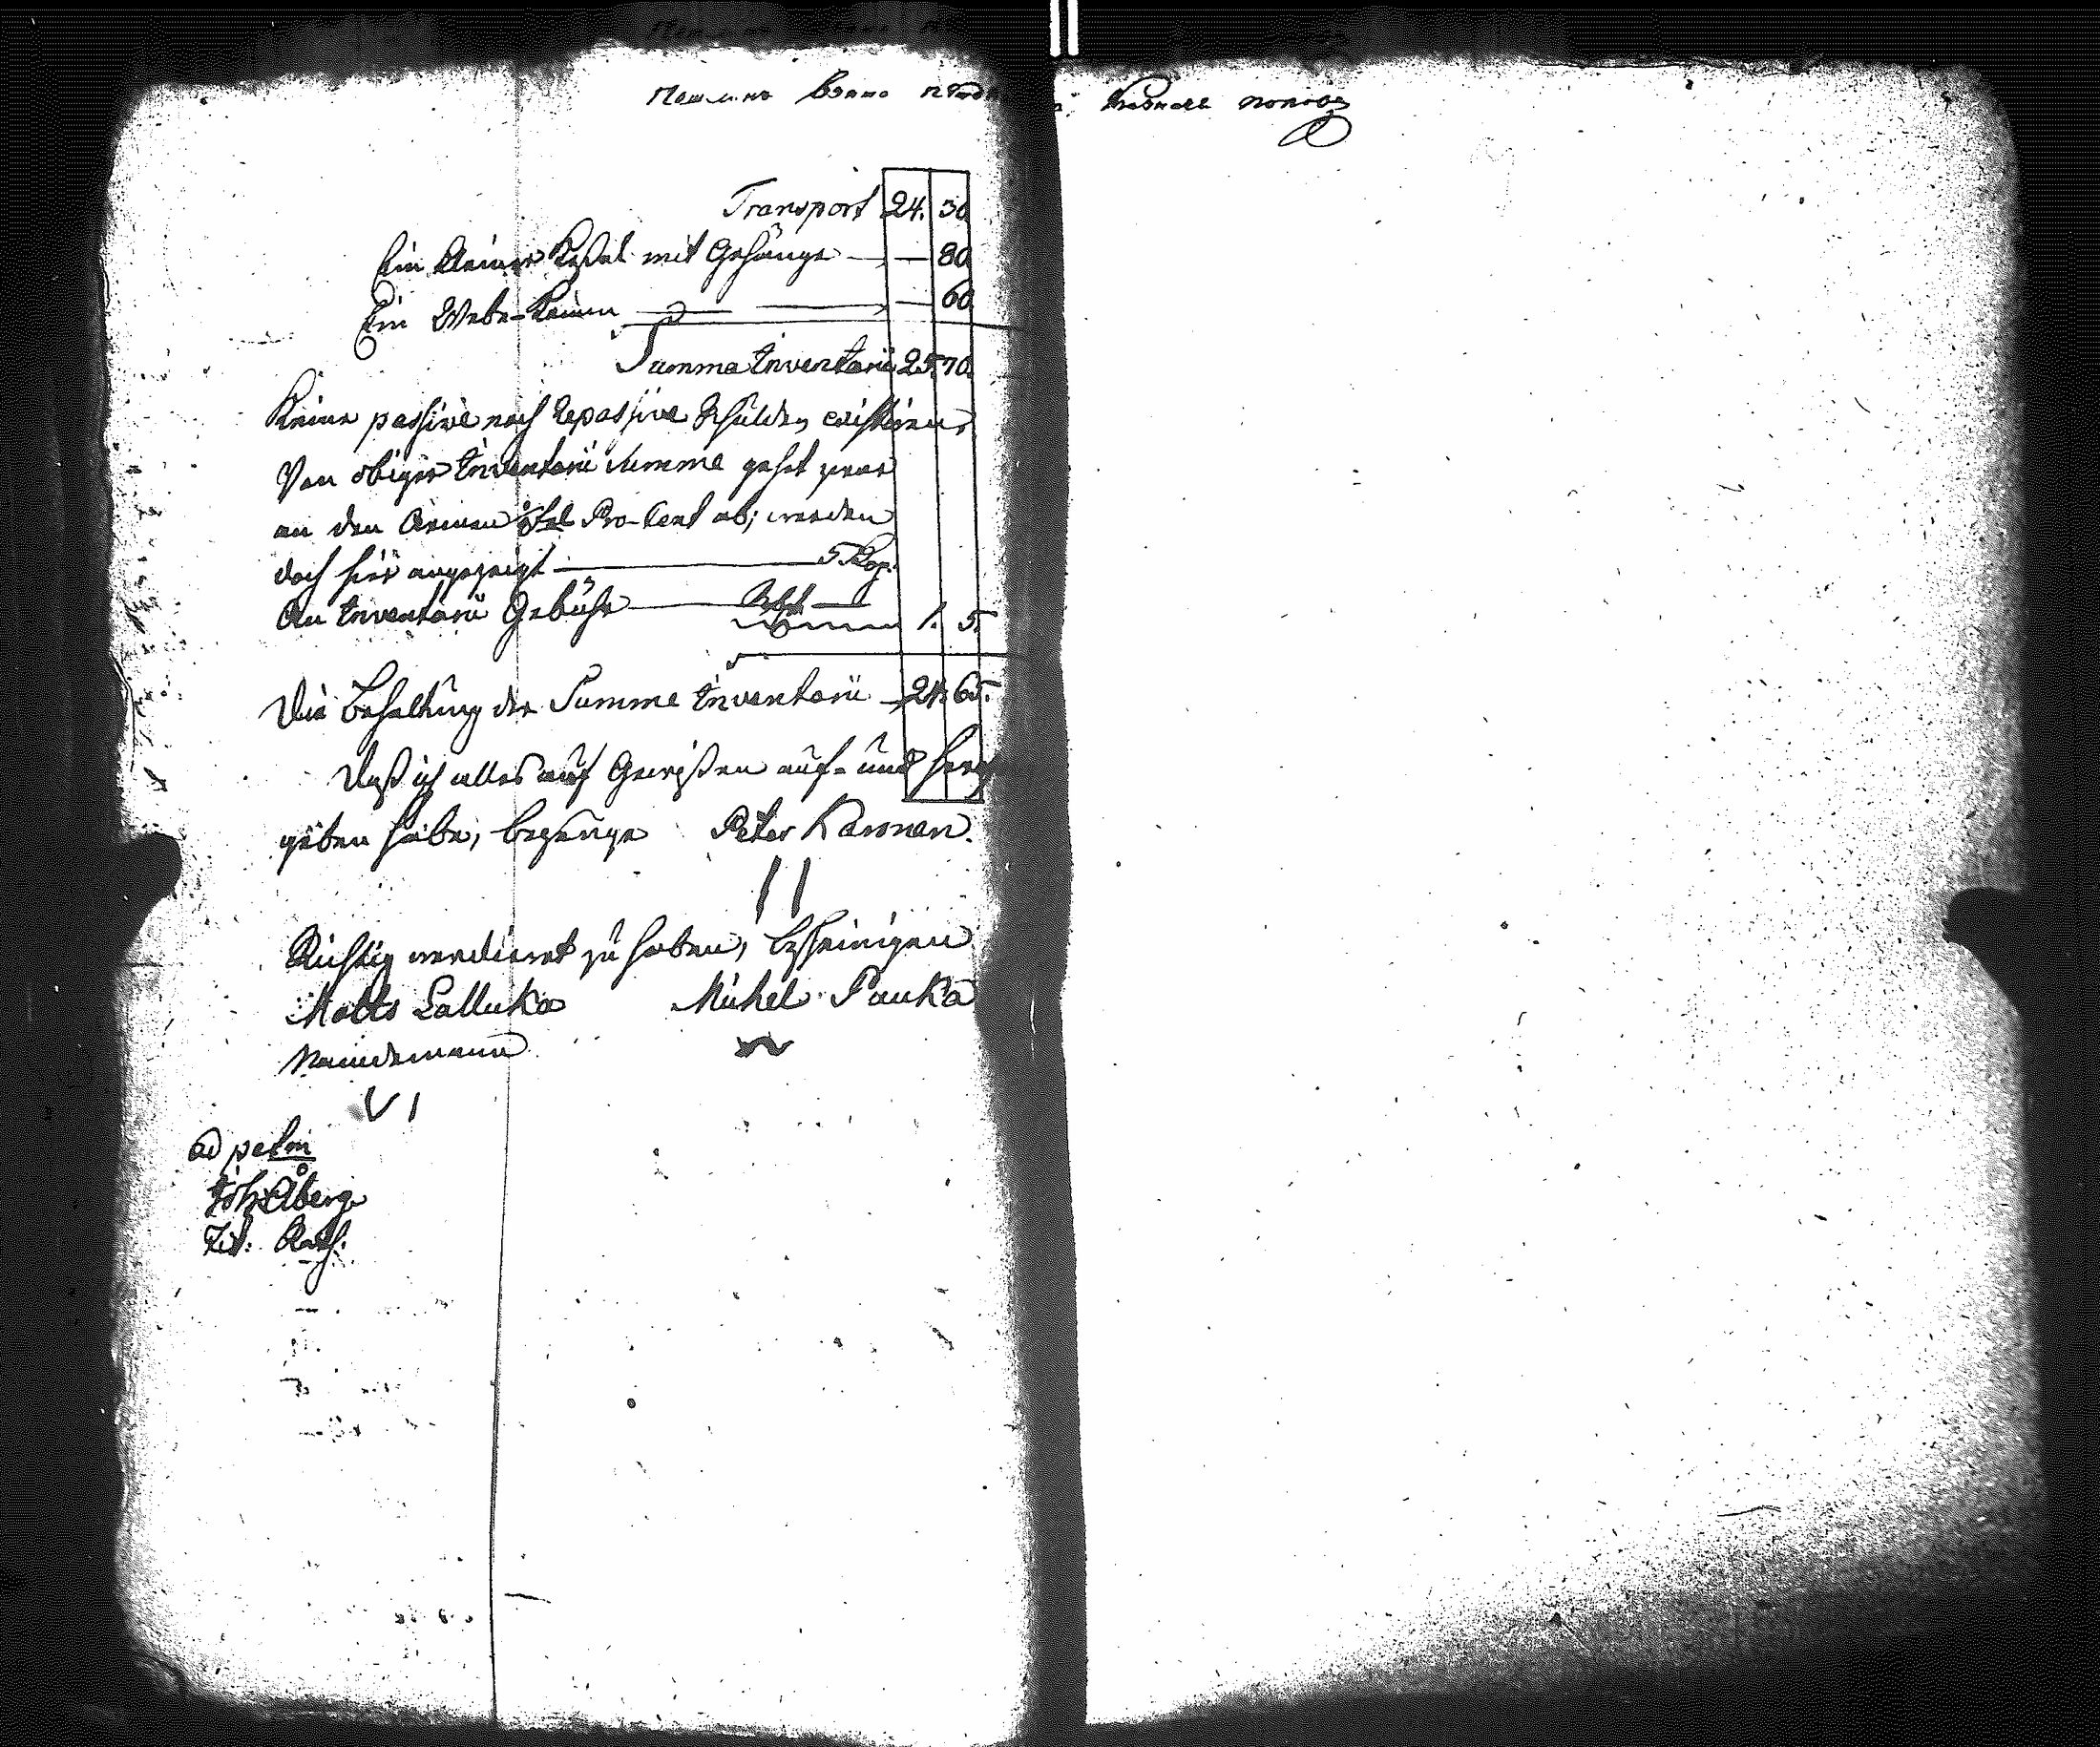 Пошлинъ взято
Transport 24. 30
Ein kleiner Keßel mit Gehänge — — 80.
Ein Webe-Kamm — — 60.
Summa Inventarii 25. 70.
Keine passive noch repassive Schulden existiren,
Von obiger Inventarii Summe geht zwar
an den Armen Pro-Cent ab; werden
doch hier angezeigt — 5 Kop.
An Inventarii Gebühr — 1. 5.
Die Behaltung der Summe Inventarii — 24. 65.
Daß ich alles auf Gewißen auf- und
geben habe, bezeuge Peter Karonen.
Richtig verdieret zu haben, bescheinigen
Matts Lalluka Michel Pauka
Nämdemann
ad petm
Joh: Åberg
Tit: Rath: